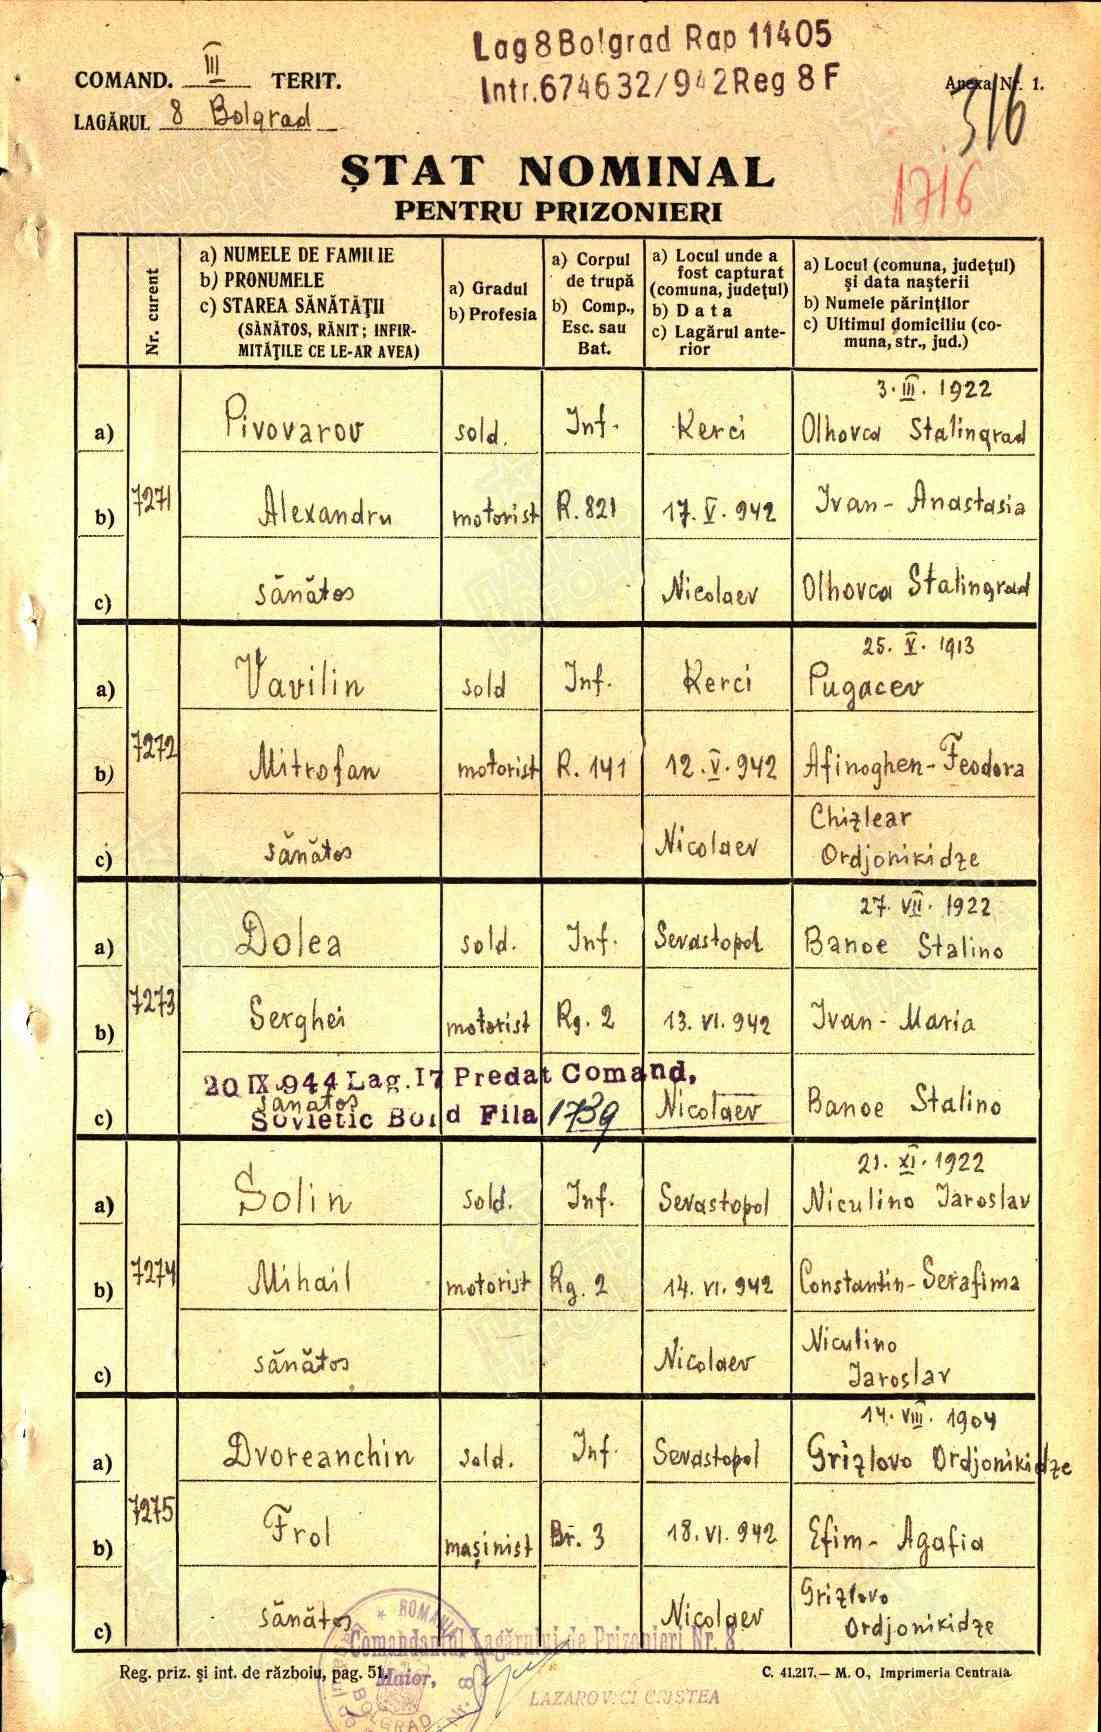 Lag 8 Bolgrad Rap 11405
COMAND. III TERIT.
Intr. 674632/942 Reg 8 F
Anexa Nr. 1.
LAGĂRUL 8 Bolgrad
316
ȘTAT NOMINAL
1716
PENTRU PRIZONIERI
Nr. curent
a) NUMELE DE FAMILIE
b) PRONUMELE
c) STAREA SĂNĂTĂȚII
(SĂNĂTOS, RĂNIT; INFIR-
MITĂȚILE CE LE-AR AVEA)
a) Gradul
b) Profesia
a) Corpul
de trupă
b) Comp.,
Esc. sau
Bat.
a) Locul unde a
fost capturat
(comuna, județul)
b) Data
c) Lagărul ante-
rior
a) Locul (comuna, județul)
și data nașterii
b) Numele părinților
c) Ultimul domiciliu (co-
muna, str., jud.)
3. III. 1922
a) Pivovarov sold. Inf. Kerci Olhovca Stalingrad
7271
b) Alexandru motorist R. 821 17. V. 942 Ivan - Anastasia
c) sănătos Nicolaev Olhovca Stalingrad
25. V. 1913
a) Vavilin sold Inf. Kerci Pugacev
7272
b) Mitrofan motorist R. 141 12. V. 942 Afinoghen - Feodora
Chizlear
c) sănătos Nicolaev Ordjonikidze
27. VII. 1922
a) Dolea sold. Inf. Sevastopol Banoe Stalino
7273
b) Serghei motorist Rg. 2 13. VI. 942 Ivan - Maria
20 IX 944 Lag. 17 Predat Comand,
c) sănătos Nicolaev Banoe Stalino
Sovietic Bord Fila 1739
21. XI. 1922
a) Solin sold. Inf. Sevastopol Niculino Iaroslav
7274
b) Mihail motorist Rg. 2 14. VI. 942 Constantin - Serafima
Niculino
c) sănătos Nicolaev Iaroslav
14. VIII. 1904
a) Dvoreanchin sold. Inf. Sevastopol Grizlovo Ordjonikidze
7275
b) Frol mașinist Br. 3 18. VI. 942 Efim - Agafia
Grizlovo
c) sănătos Nicolaev Ordjonikidze
ROMANIA
Comandantul Lagărului de Prizonieri Nr. 8
Reg. priz. și int. de război, pag. 51.
C. 41.217. — M. O., Imprimeria Centrală
Maior,
LAZAROVICI CRISTEA
BOLGRAD
Nr. 8
ПАМЯТЬ
НАРОДА